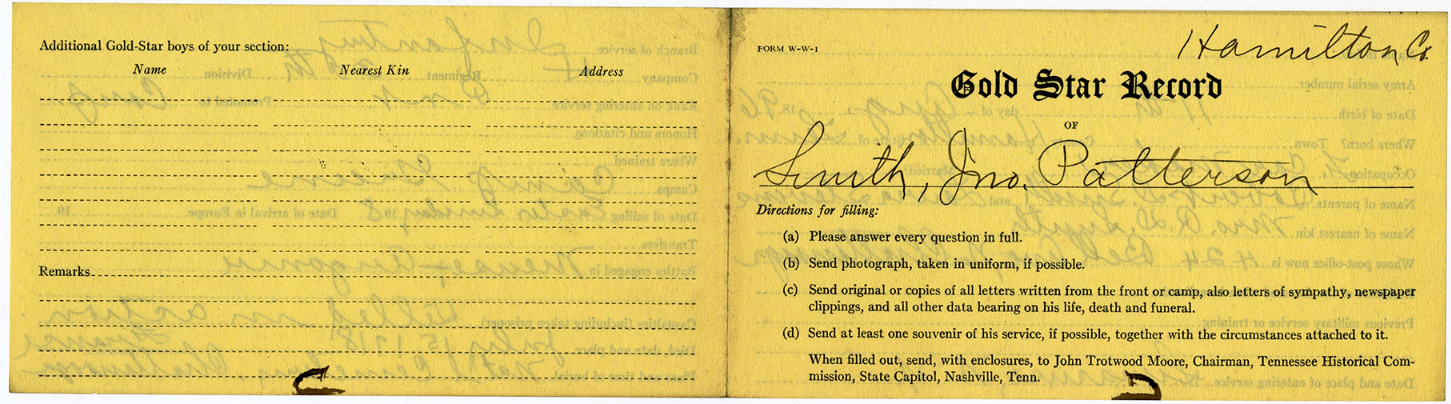 Additional Gold-Star boys of your section:
Name Nearest Kin Address
Remarks
Hamilton Co
FORM W-W-1
Gold Star Record
OF
Smith, Jno. Patterson
Directions for filling:
(a) Please answer every question in full.
(b) Send photograph, taken in uniform, if possible.
(c) Send original or copies of all letters written from the front or camp, also letters of sympathy, newspaper
clippings, and all other data bearing on his life, death and funeral.
(d) Send at least one souvenir of his service, if possible, together with the circumstances attached to it.
When filled out, send, with enclosures, to John Trotwood Moore, Chairman, Tennessee Historical Com-
mission, State Capitol, Nashville, Tenn.